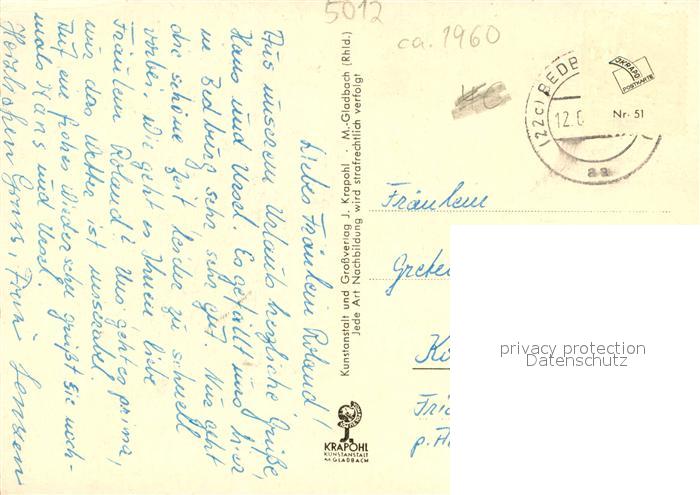 5012
ca. 1960
Liebes Fräulein Roland!
Aus unserem Urlaub herzliche Grüße,
Hans und Ursel. Es gefällt uns hier
in Bedburg sehr sehr gut. Nur geht
die schöne Zeit leider zu schnell
vorbei. Wie geht es Ihnen liebe
Fräulein Roland? Uns geht es prima,
nur das Wetter ist miserabel.
Auf ein frohes Wiedersehn grüßt sie noch-
mals Hans und Ursel.
Herzlichen Gruss, Frau Jensen
Kunstanstalt und Großverlag J. Krapohl · M.-Gladbach (Rhld.)
Jede Art Nachbildung wird strafrechtlich verfolgt
KRAPOHL
KUNSTANSTALT
M.GLADBACH
(22c) BEDB
12.
aa
JKRAPO
POSTKARTE
Nr. 51
Fräulein
Grete
privacy protection
Datenschutz